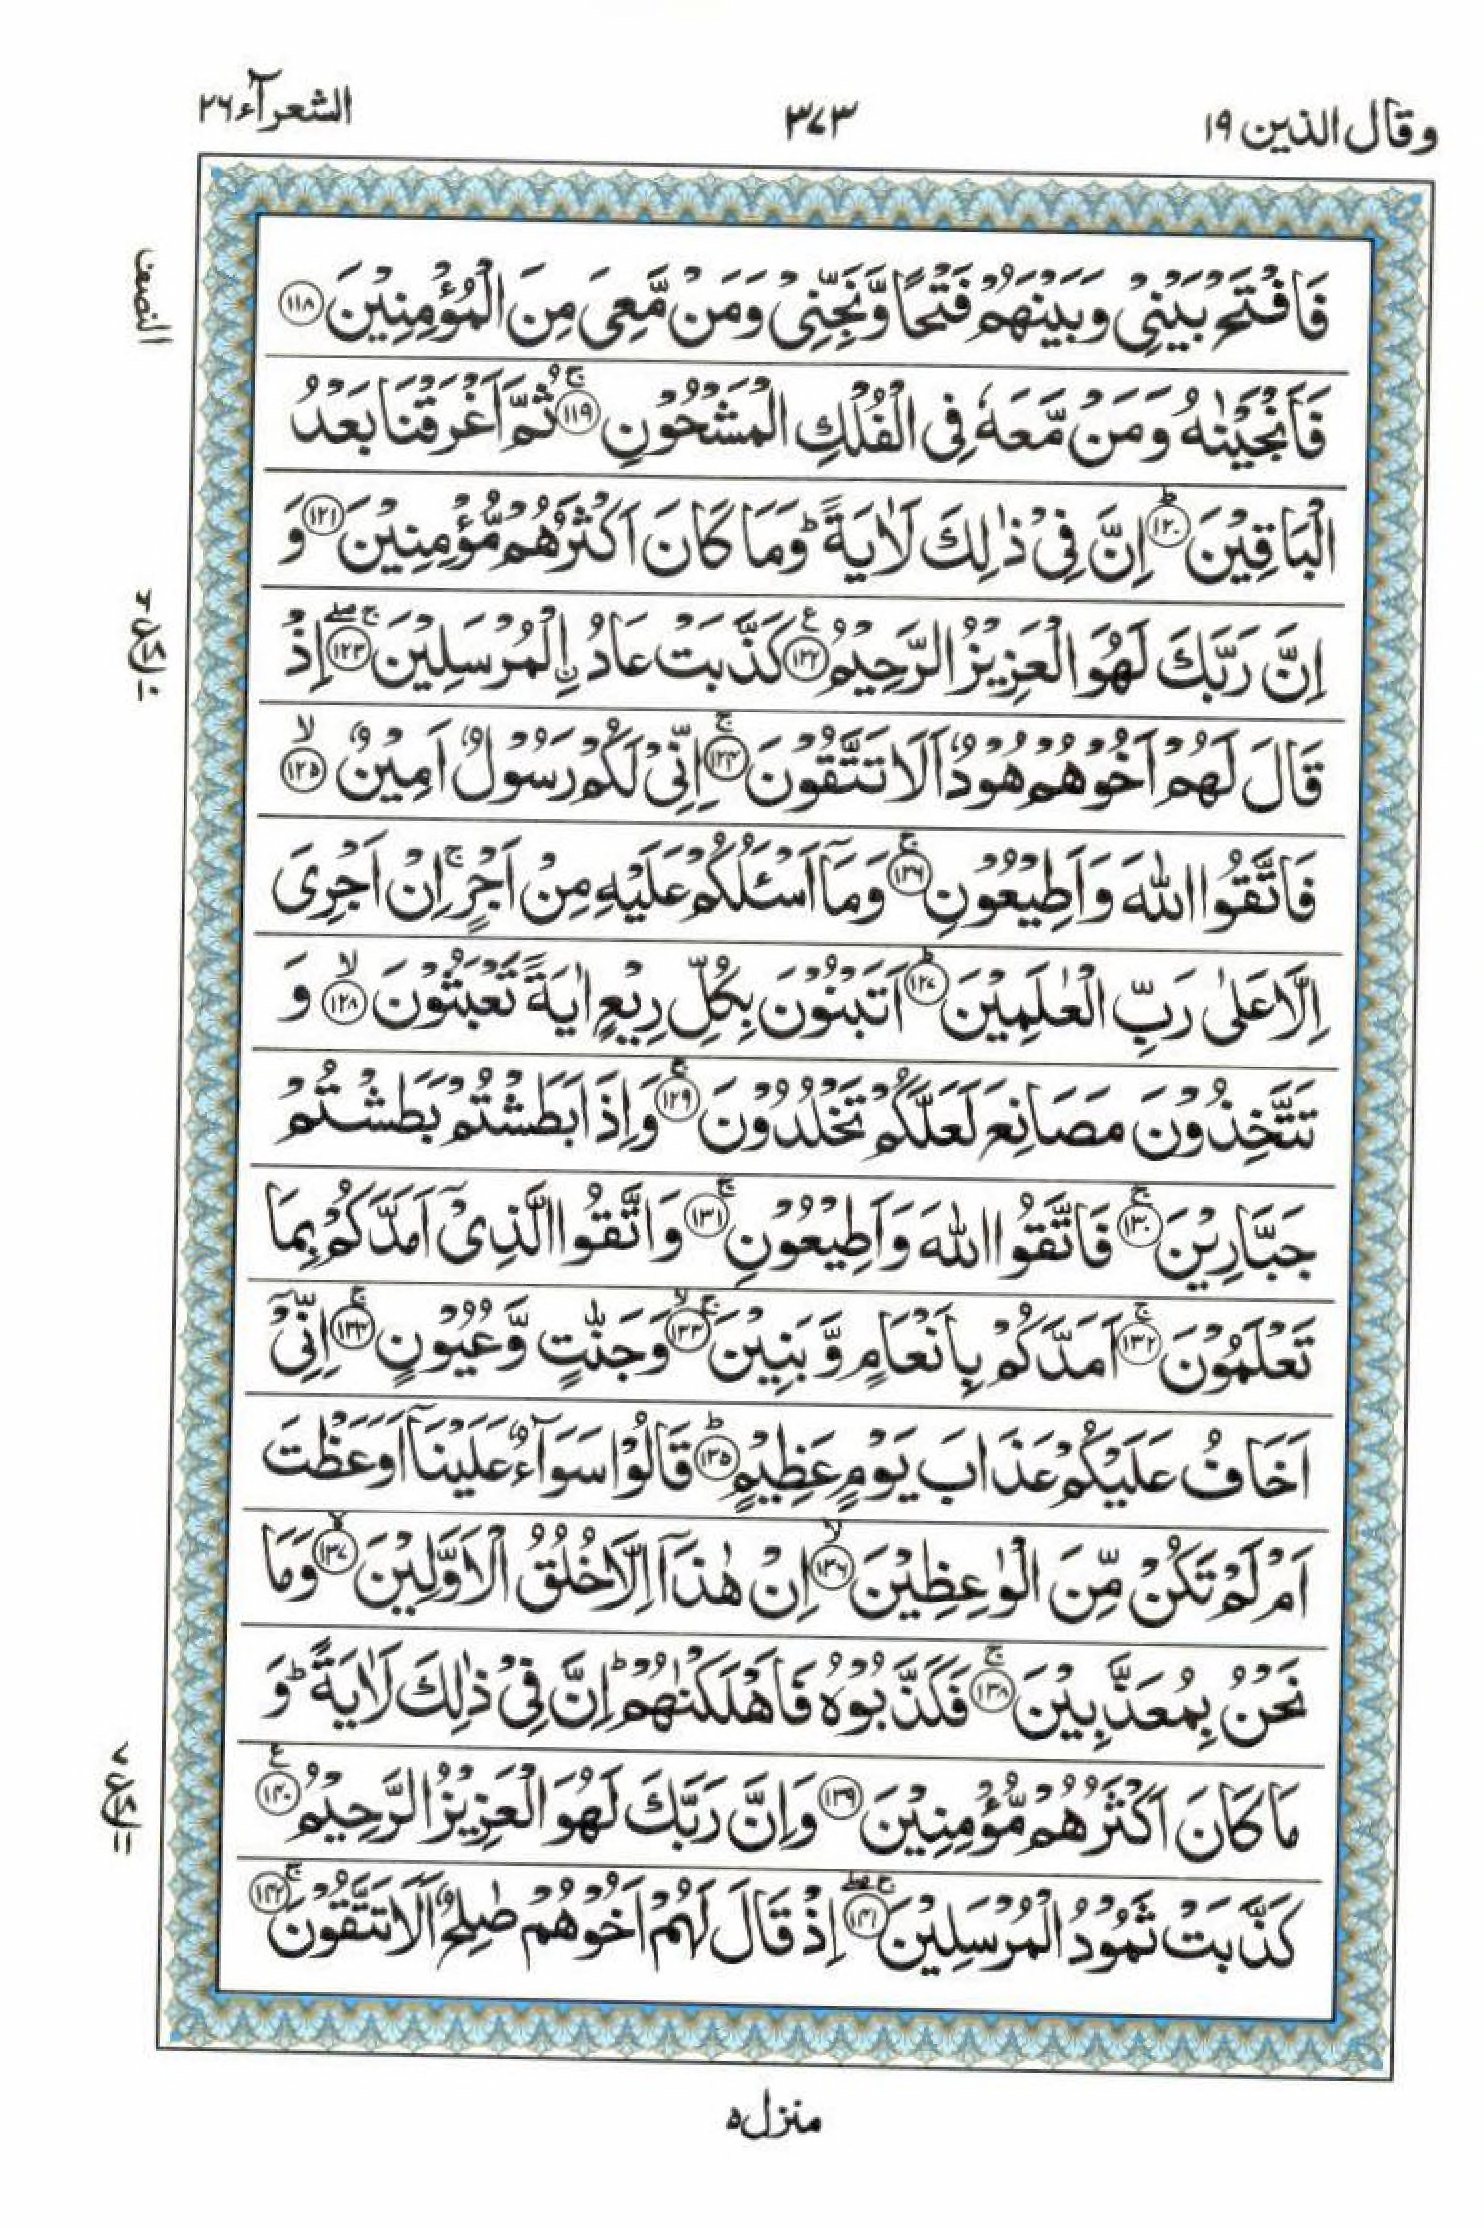 وقال الذين ١٩
٣٧٣
الشعرآء ٢٦
فَافْتَحْ بَيْنِيْ وَبَيْنَهُمْ فَتْحًا وَّنَجِّنِيْ وَمَنْ مَّعِيَ مِنَ الْمُؤْمِنِيْنَ ١١٨
النصف
فَاَنْجَيْنٰهُ وَمَنْ مَّعَهٗ فِي الْفُلْكِ الْمَشْحُوْنِ ج ١١٩ ثُمَّ اَغْرَقْنَا بَعْدُ
الْبَاقِيْنَ ط ١٢٠ اِنَّ فِيْ ذٰلِكَ لَاٰيَةً ط وَمَا كَانَ اَكْثَرُهُمْ مُّؤْمِنِيْنَ ١٢١ وَ
اِنَّ رَبَّكَ لَهُوَ الْعَزِيْزُ الرَّحِيْمُ ع ١٢٢ كَذَّبَتْ عَادُ نِ الْمُرْسَلِيْنَ ج صلے ١٢٣ اِذْ
٦ ع ١٠
قَالَ لَهُمْ اَخُوْهُمْ هُوْدٌ اَلَا تَتَّقُوْنَ ج ١٢٤ اِنِّيْ لَكُمْ رَسُوْلٌ اَمِيْنٌ لا ١٢٥
فَاتَّقُوا اللّٰهَ وَاَطِيْعُوْنِ ج ١٢٦ وَمَآ اَسْئَلُكُمْ عَلَيْهِ مِنْ اَجْرٍ ج اِنْ اَجْرِيَ
اِلَّا عَلٰى رَبِّ الْعٰلَمِيْنَ ط ١٢٧ اَتَبْنُوْنَ بِكُلِّ رِيْعٍ اٰيَةً تَعْبَثُوْنَ لا ١٢٨ وَ
تَتَّخِذُوْنَ مَصَانِعَ لَعَلَّكُمْ تَخْلُدُوْنَ ج ١٢٩ وَاِذَا بَطَشْتُمْ بَطَشْتُمْ
جَبَّارِيْنَ ج ١٣٠ فَاتَّقُوا اللّٰهَ وَاَطِيْعُوْنِ ج ١٣١ وَاتَّقُوا الَّذِيْٓ اَمَدَّكُمْ بِمَا
تَعْلَمُوْنَ ج ١٣٢ اَمَدَّكُمْ بِاَنْعَامٍ وَّبَنِيْنَ ج لا ١٣٣ وَجَنّٰتٍ وَّعُيُوْنٍ ج ١٣٤ اِنِّيْٓ
اَخَافُ عَلَيْكُمْ عَذَابَ يَوْمٍ عَظِيْمٍ ط ١٣٥ قَالُوْا سَوَآءٌ عَلَيْنَآ اَوَعَظْتَ
اَمْ لَمْ تَكُنْ مِّنَ الْوٰعِظِيْنَ لا ١٣٦ اِنْ هٰذَآ اِلَّا خُلُقُ الْاَوَّلِيْنَ لا ١٣٧ وَمَا
نَحْنُ بِمُعَذَّبِيْنَ ج ١٣٨ فَكَذَّبُوْهُ فَاَهْلَكْنٰهُمْ ط اِنَّ فِيْ ذٰلِكَ لَاٰيَةً ط وَ
مَا كَانَ اَكْثَرُهُمْ مُّؤْمِنِيْنَ ١٣٩ وَاِنَّ رَبَّكَ لَهُوَ الْعَزِيْزُ الرَّحِيْمُ ع ١٤٠
٧ ع ١١
كَذَّبَتْ ثَمُوْدُ الْمُرْسَلِيْنَ ج صلے ١٤١ اِذْ قَالَ لَهُمْ اَخُوْهُمْ صٰلِحٌ اَلَا تَتَّقُوْنَ ج ١٤٢
منزل ٥